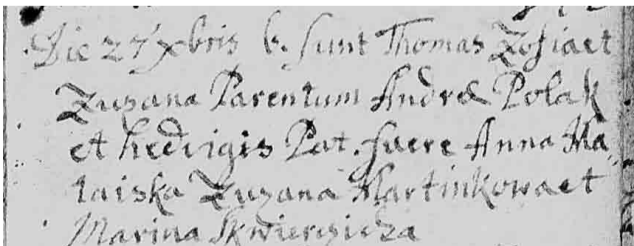 Die 27 Xbris b. sunt Thomas Zofia et
Zuzana Parentum Andreæ Polak
et hedvigis Pat. fuere Anna Ma,
laiska Zuzana Martinkowa et
Marina Skwierczicza